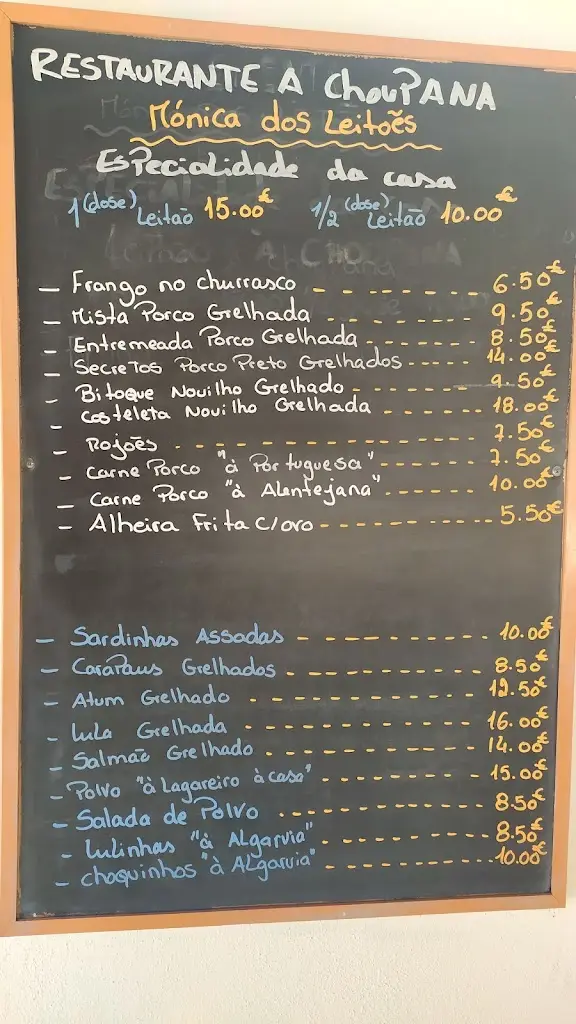 RESTAURANTE A CHOUPANA
Mónica dos Leitoẽs
Especialidade da casa
1 (dose) Leitão 15.00€ 1/2 (dose) Leitão 10.00€
- Frango no churrasco - - - - - - - - 6.50€
- Mista Porco Grelhada - - - - - - - - 9.50€
- Entremeada Porco Grelhada - - - - - - 8.50€
- Secretos Porco Preto Grelhados - - - - - 14.00€
- Bitoque Novilho Grelhado - - - - - - - 9.50€
- Costeleta Novilho Grelhada - - - - - - 18.00€
- Rojões - - - - - - - - - - - - - - 7.50€
- Carne Porco "à Portuguesa" - - - - - - 7.50€
- Carne Porco "à Alentejana" - - - - - - 10.00€
- Alheira Frita C/ovo - - - - - - - - - 5.50€
- Sardinhas Assadas - - - - - - - - - - 10.00€
- Carapaus Grelhados - - - - - - - - - - 8.50€
- Atum Grelhado - - - - - - - - - - - - 12.50€
- Lula Grelhada - - - - - - - - - - - - 16.00€
- Salmão Grelhado - - - - - - - - - - - 14.00€
- Polvo "à Lagareiro à casa" - - - - - - - - 15.00€
- Salada de Polvo - - - - - - - - - - - 8.50€
- Lulinhas "à Algarvia" - - - - - - - - - 8.50€
- choquinhos "à Algarvia" - - - - - - - - 10.00€